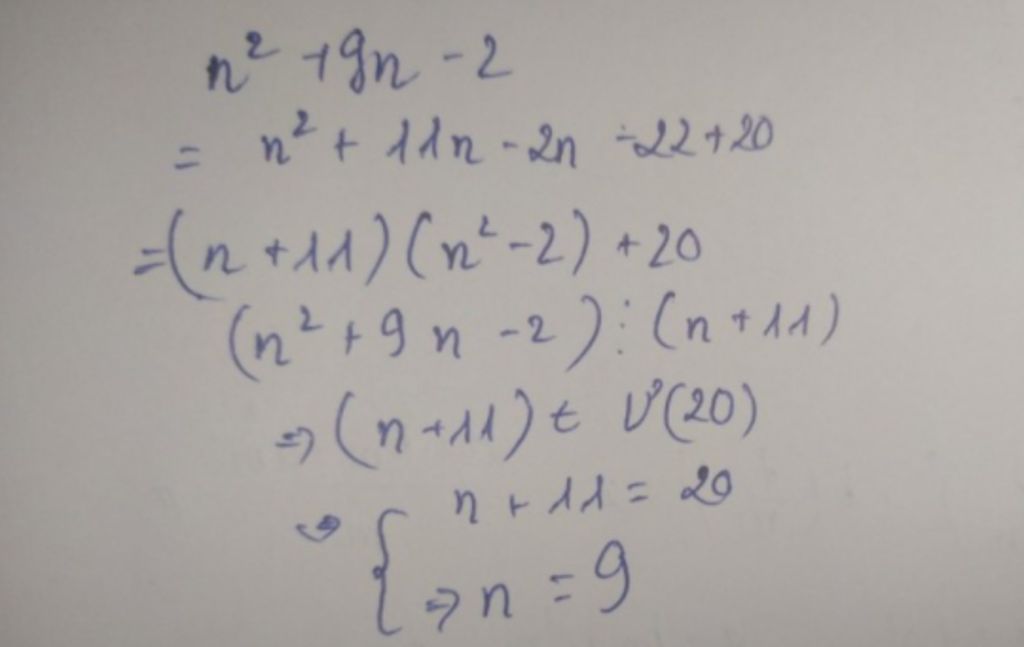 n² + 9n - 2
= n² + 11n - 2n - 22 + 20
= (n + 11) (n² - 2) + 20
(n² + 9n - 2) ⋮ (n + 11)
⇒ (n + 11) ∈ Ư(20)
⇒ { n + 11 = 20
⇒ n = 9